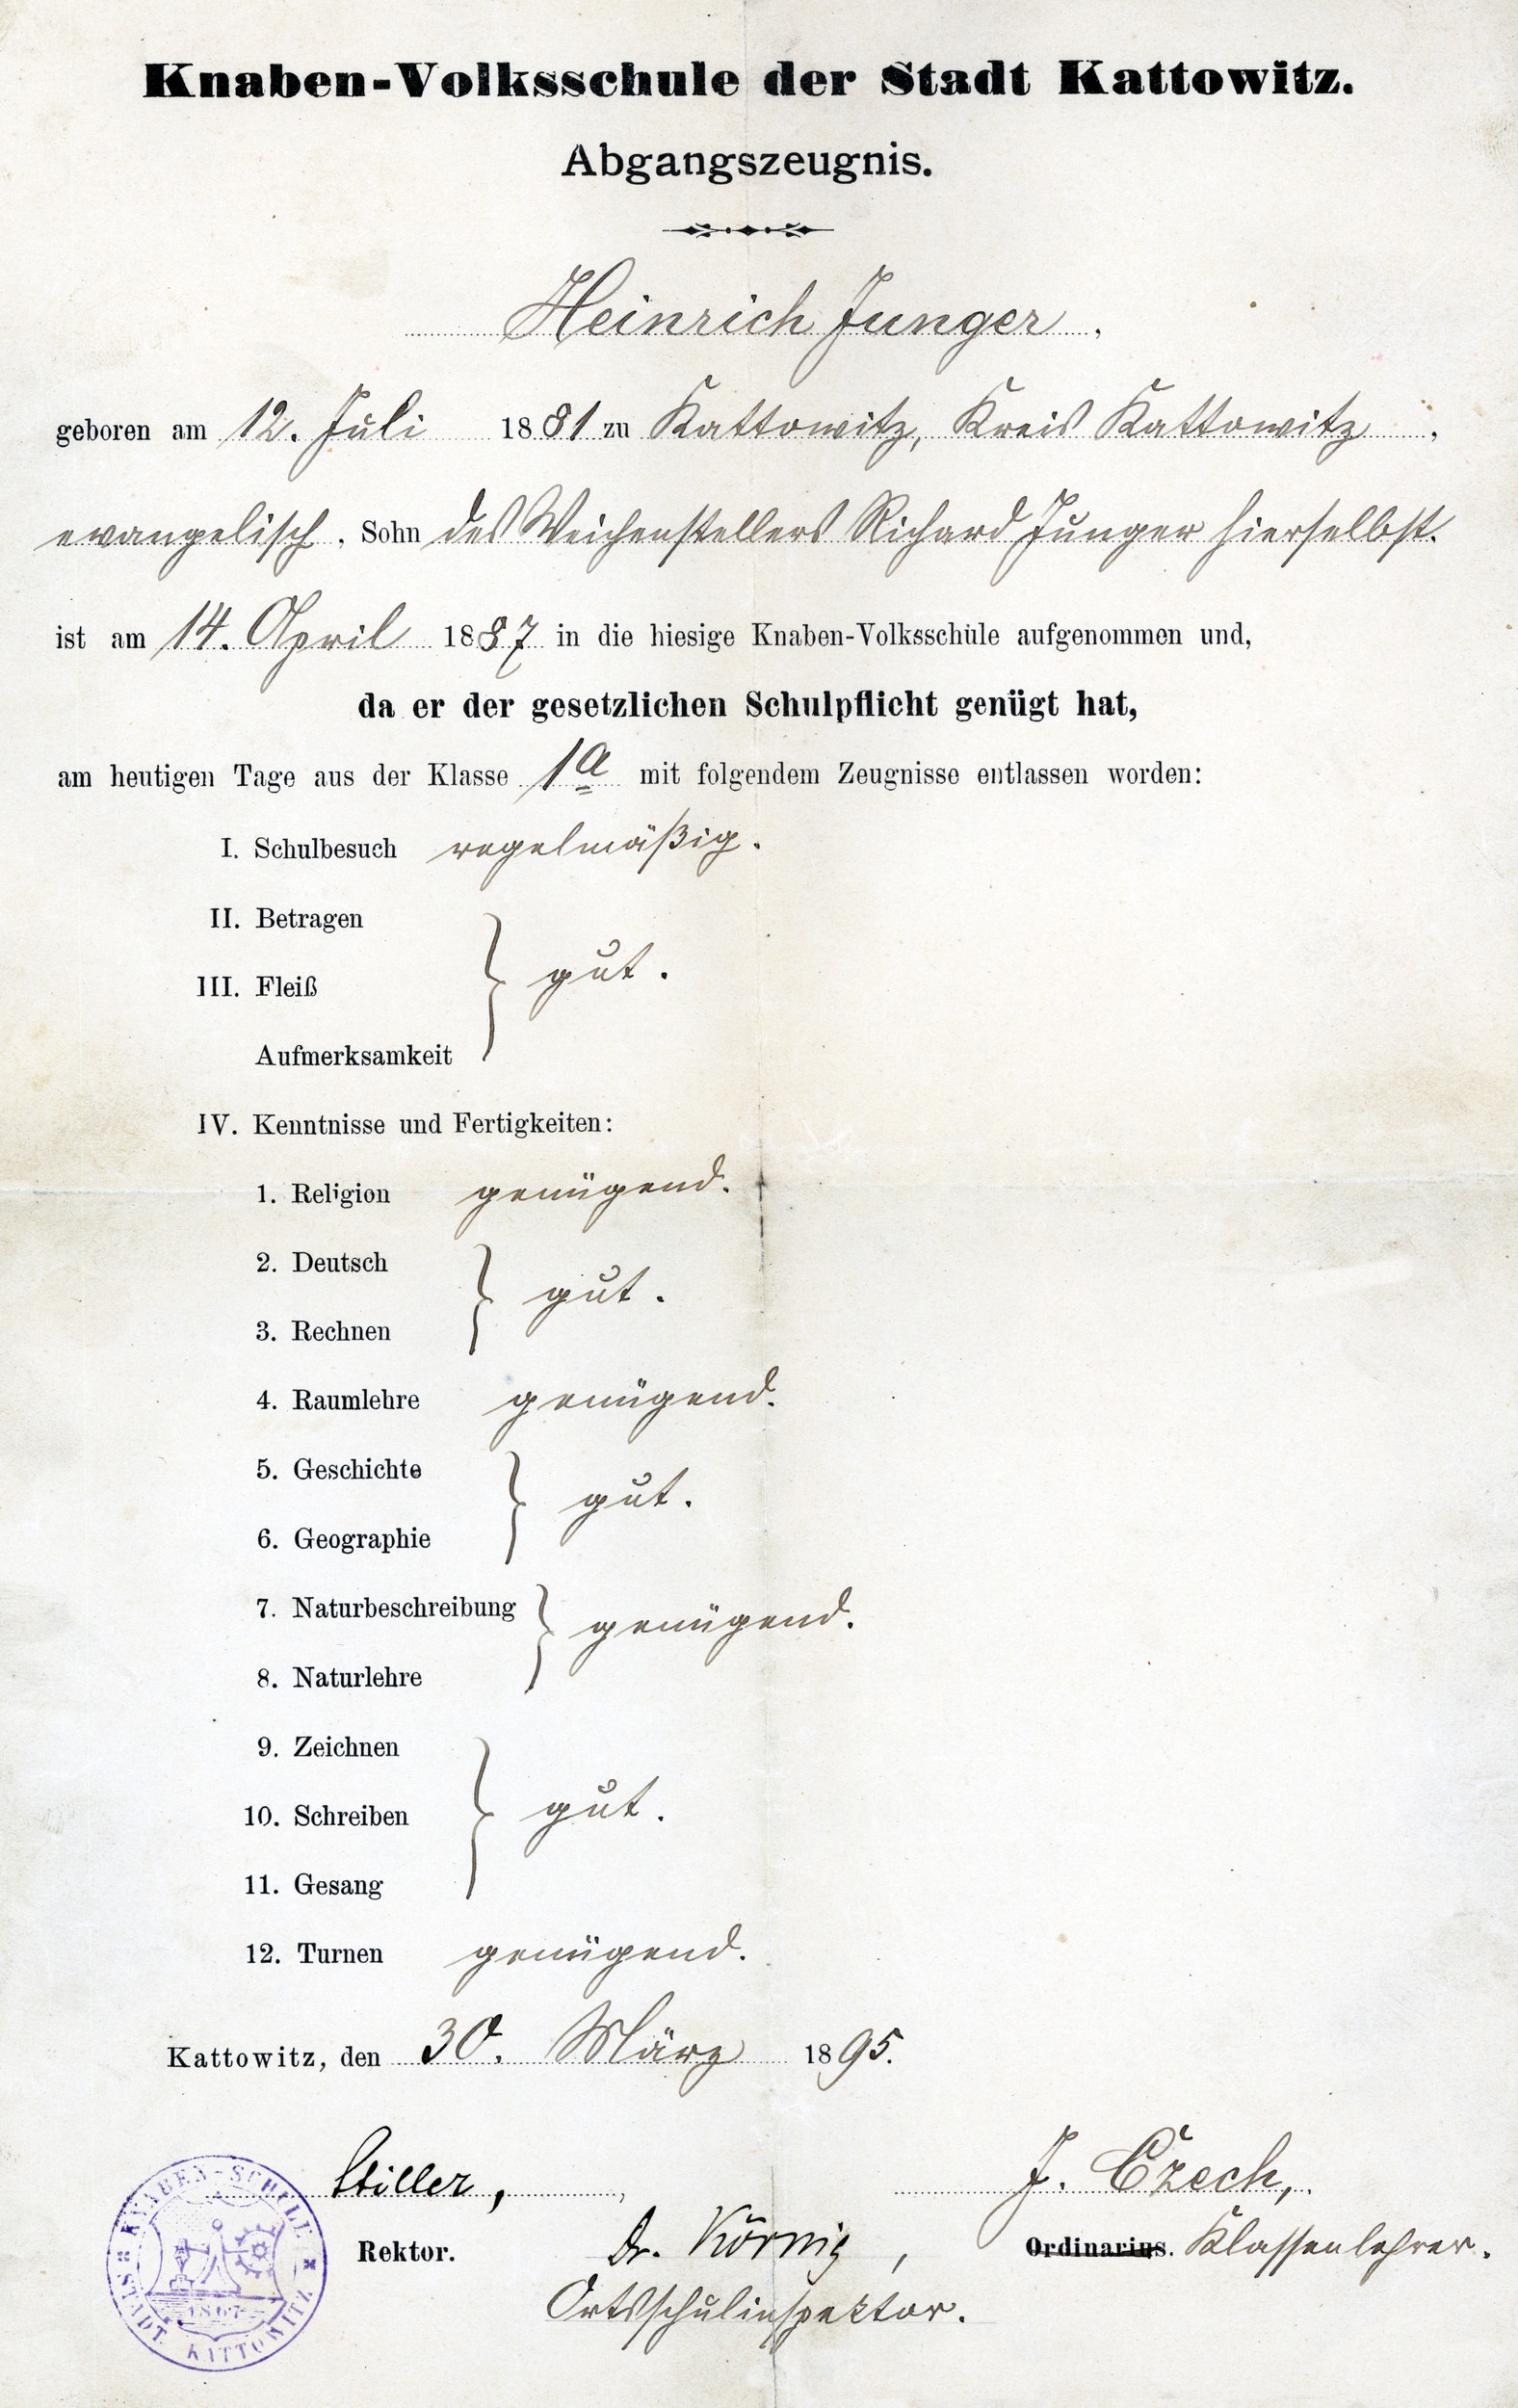 Knaben-Volksschule der Stadt Kattowitz.
Abgangszeugnis.
Heinrich Junger,
geboren am 12. Juli 1881 zu Kattowitz, Kreis Kattowitz,
evangelisch, Sohn des Weichenstellers Richard Junger hierselbst.
ist am 14. April 1887 in die hiesige Knaben-Volksschule aufgenommen und,
da er der gesetzlichen Schulpflicht genügt hat,
am heutigen Tage aus der Klasse 1a mit folgendem Zeugnisse entlassen worden:
I. Schulbesuch regelmäßig.
II. Betragen
III. Fleiß } gut.
Aufmerksamkeit
IV. Kenntnisse und Fertigkeiten:
1. Religion genügend.
2. Deutsch
} gut.
3. Rechnen
4. Raumlehre genügend.
5. Geschichte
} gut.
6. Geographie
7. Naturbeschreibung
} genügend.
8. Naturlehre
9. Zeichnen
10. Schreiben } gut.
11. Gesang
12. Turnen genügend.
Kattowitz, den 30. März 1895.
Stiller, J. Czech,
Rektor. Dr. Körnig, Ordinarius. Klassenlehrer.
Ortsschulinspektor.
KNABEN-SCHULE
STADT KATTOWITZ
1867